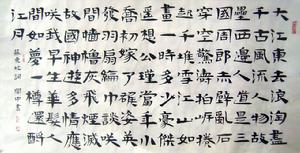 大江東去浪淘盡
千古風流人物故
壘西邊人道是三
國周郎赤壁亂石
穿空驚濤拍岸捲
起千堆雪江山如
畫一時多少豪傑
遙想公瑾當年小
喬初嫁了雄姿英
發羽扇綸巾談笑
間檣櫓灰飛煙滅
故國神遊多情應
咲我早生華髮人
間如夢一樽還酹
江月
蘇東坡詞